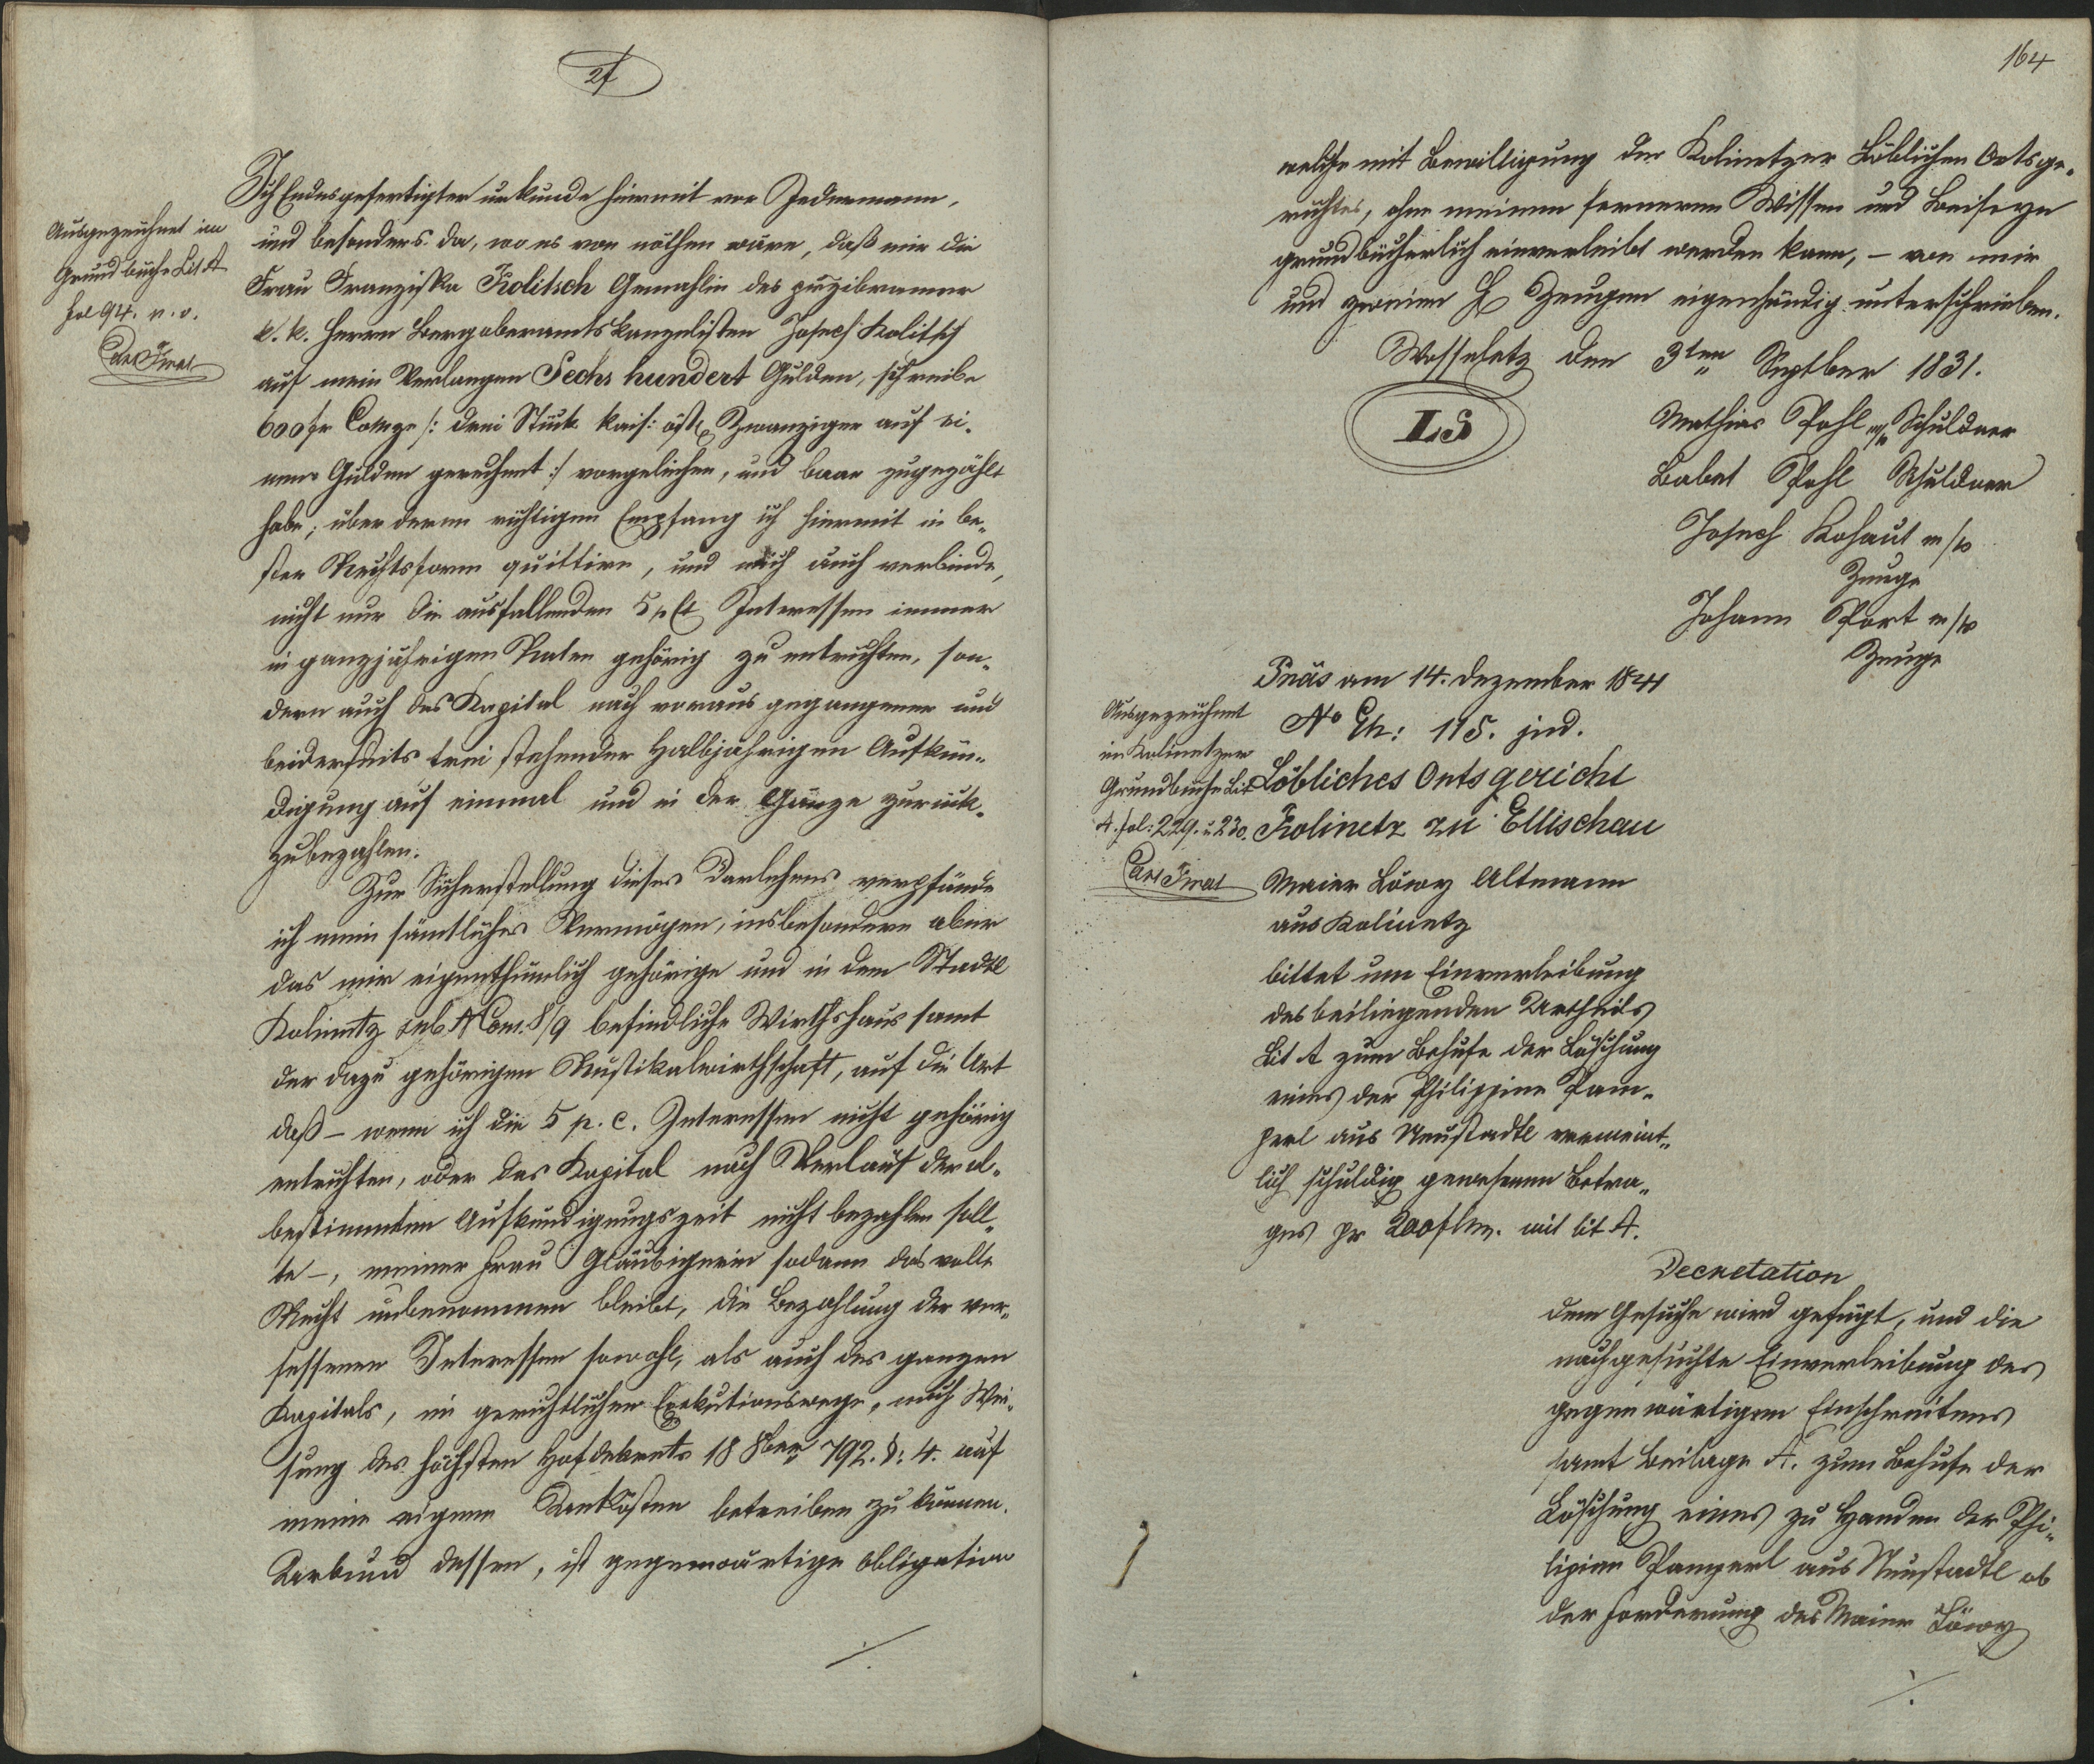 21
Ausgezeichnet im
Grundbuche Lit A
fol 94. p. v.
Ich Endesgefertigter urkunde hiermit vor Jedermann,
und besonders da, wo es von nöthen wäre, daß mir die
Frau Franziska Kolitsch Gemahlin des przibramer
k. k. Herrn Bergoberamtskanzelisten Josef Kolitsch
auf mein Verlangen Sechs hundert Gulden, schreibe
600 fr Convze /: drei Stück kais: öst: Zwanziger auf ei-
nen Gulden gerechnet :/ vorgeliehen, und baar zugezählt
habe; über deren richtigen Empfang ich hiermit in be-
ster Rechtsform quittire, und mich auch verbinde,
nicht nur die ausfallenden 5 p Ct Interessen immer
in ganzjährigen Raten gehörig zu entrichten, son-
dern auch das Kapital nach voraus gegangener und
beiderseits frei stehender Halbjährigen Aufkün-
digung auf einmal und in der Gänze zurück-
zubezahlen.
Zur Sicherstellung dieses Darlehens verpfände
ich mein sämtliches Vermögen, insbesondere aber
das mir eigenthümlich gehörige und in dem Stadtl
Kolinetz sub N Cons. 8/9 befindliche Wirthshaus samt
der dazu gehörigen Rustikalwirthschaft, auf die Art
daß – wenn ich die 5 p. c. Interessen nicht gehörig
entrichten, oder das Kapital nach Verlauf der ob-
bestimmten Aufkündigungszeit nicht bezahlen soll-
te –, meiner Frau Gläubigerin sodann das volle
Recht unbenommen bleibt, die Bezahlung der ver-
sessenen Interessen sowohl, als auch des ganzen
Kapitals, im gerichtlichen Exekutionswege, nach Wei-
sung des höchsten Hofdekrets 18 8ber 792. §: 4. auf
meine eigene Unkösten betreiben zu können.
Urkund dessen, ist gegenwärtige Obligation
./.
164
welche mit Bewilligung des Kolinetzer Löblichen Ortsge-
richtes, ohne meinem ferneren Wissen und Beiseyn
grundbücherlich einverleibt werden kann, – von mir
und zweien H Zeugen eigenhändig unterschrieben.
Wosseletz den 3ten Septber 1831.
LS
Mathias Pohl m/p Schuldner
Babet Pohl Schuldner
Josef Kohaut m/p
Zeuge
Johann Port m/p
Zeuge
Präs am 14. Dezember 1841
No Eh: 115. jud.
Ausgezeichnet
im Kolinetzer
Grundbuche Lit
A. fol: 229. u 230.
Löbliches Ortsgericht
Kolinetz zu Ellischau
Maier Löwy Altmann
aus Kolinetz
bittet um Einverleibung
des beiliegenden Urtheils
Lit A zum Behufe der Löschung
eines der Philippine Pam-
perl aus Neustadtl vermeint-
lich schuldig gewesenen Betra-
ges pr 200 f Cm. mit lit A.
Decretation
Dem Gesuche wird gefügt, und die
nachgesuchte Einverleibung des
gegenwärtigen Einschreitens
samt Beilage A. zum Behufe der
Löschung eines zu Handen der Phi-
lipine Pamperl aus Neustadtl ob
der Forderung des Maier Löwy
./.